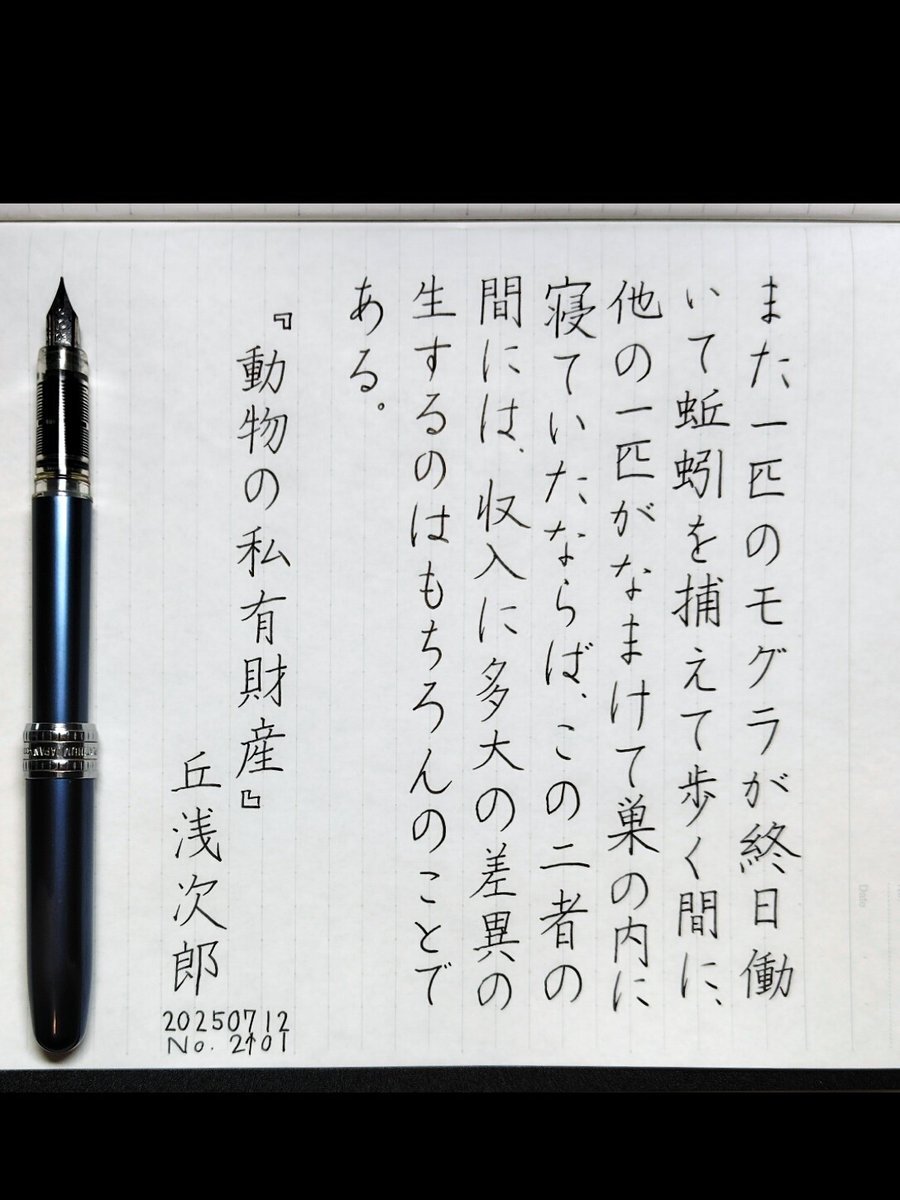 また一匹のモグラが終日働
いて蚯蚓を捕えて歩く間に、
他の一匹がなまけて巣の内に
寝ていたならば、この二者の
間には、収入に多大の差異の
生するのはもちろんのことで
ある。
『動物の私有財産』
丘浅次郎
20250712
No. 2101